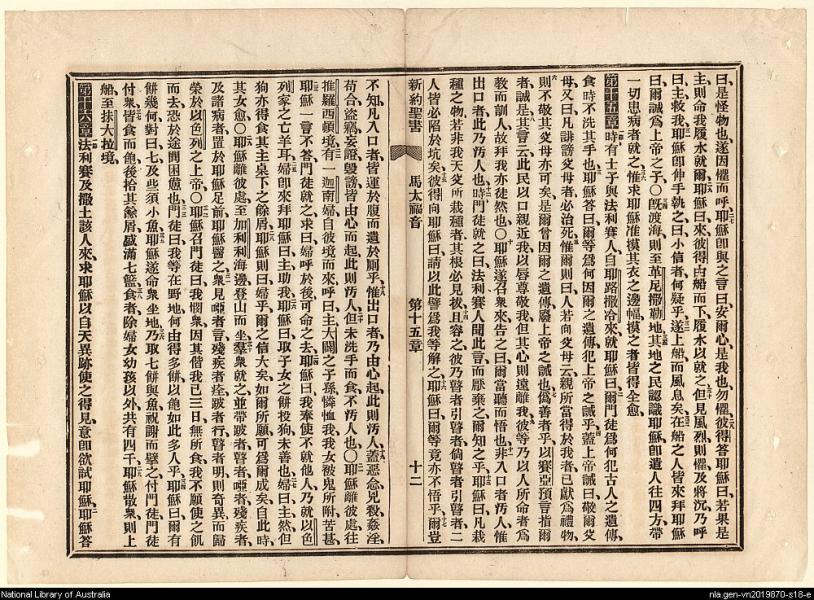 曰是怪物也遂因懼而呼耶穌卽與之言曰安爾心是我也勿懼彼得答耶穌曰若果是
主則命我履水就爾耶穌曰來彼得由船而下履水以就之但見風烈則懼及將沉乃呼
曰主救我耶穌卽伸手執之曰小信者何疑乎遂上船而風息矣在船之人皆來拜耶穌
曰爾誠爲上帝之子〇旣渡海則至革尼撒勒地其地之民認識耶穌卽遣人往四方帶
一切患病者就之惟求耶穌准摸其衣之邊幅摸之者皆得全愈
第十五章時有士子與法利賽人自耶路撒冷來就耶穌曰爾門徒爲何犯古人之遺傳
食時不洗其手也耶穌答曰爾等爲何因爾之遺傳犯上帝之誡乎蓋上帝誡曰敬爾父
母又曰凡誹謗父母者必治死惟爾則曰人若向父母云親所當得於我者已獻爲禮物
則不敬其父母亦可矣是爾曹因爾之遺傳廢上帝之誡也僞善者乎以賽亞預言指爾
者誠是其言云此民以口親近我以唇尊敬我但其心則遠離我彼等乃以人所命者爲
教而訓人故拜我亦徒然也〇耶穌遂召衆來告之曰爾當聽而悟也非入口者汚人惟
出口者此乃汚人也時門徒就之曰法利賽人聞此言而厭棄之爾知之乎耶穌曰凡栽
種之物若非我天父所栽種者其根必見拔且容之彼乃瞽者引瞽者倘瞽者引瞽者二
人皆必陷於坑矣彼得向耶穌曰請以此譬爲我等解之耶穌曰爾等竟亦不悟乎爾豈
新約聖書 馬太福音 第十五章 十二
不知凡入口者皆運於腹而遺於厠乎惟出口者乃由心起此則汚人蓋惡念兇殺姦淫
苟合盜竊妄證毀謗皆由心而起此則汚人但未洗手而食不汚人也〇耶穌離彼處往
推羅西頓境有一迦南婦自彼境而來呼曰主大闢之子孫憐恤我我女被鬼所附苦甚
耶穌一言不答門徒就之求曰婦呼於後可命之去耶穌曰我奉使不就他人乃就以色
列家之亡羊耳婦卽來拜耶穌曰主助我耶穌曰取子女之餅投狗未善也婦曰主然但
狗亦得食其主桌下之餘屑耶穌則曰婦乎爾之信大矣如爾所願可爲爾成矣自此時
其女愈〇耶穌離彼處至加利利海邊登山而坐羣衆就之並帶跛者瞽者啞者殘疾者
及諸病者置於耶穌足前耶穌醫之衆見啞者言殘疾者痊跛者行瞽者明則奇異而歸
榮於以色列之上帝〇耶穌召門徒曰我憫衆因其偕我已三日無所食我不願使之飢
而去恐於途間困憊也門徒曰我等在野地何由得多餅以飽如此多人乎耶穌曰爾有
餅幾何對曰七及些須小魚耶穌遂命衆坐地乃取七餅與魚祝謝而擘之付門徒門徒
付衆皆食而飽後拾其餘屑盛滿七籃食者除婦女幼孩以外共有四千耶穌散衆則上
船至抹大拉境
第十六章法利賽及撒土該人來求耶穌以自天異跡使之得見意卽欲試耶穌耶穌答
National Library of Australia
nla.gen-vn2019870-s18-e